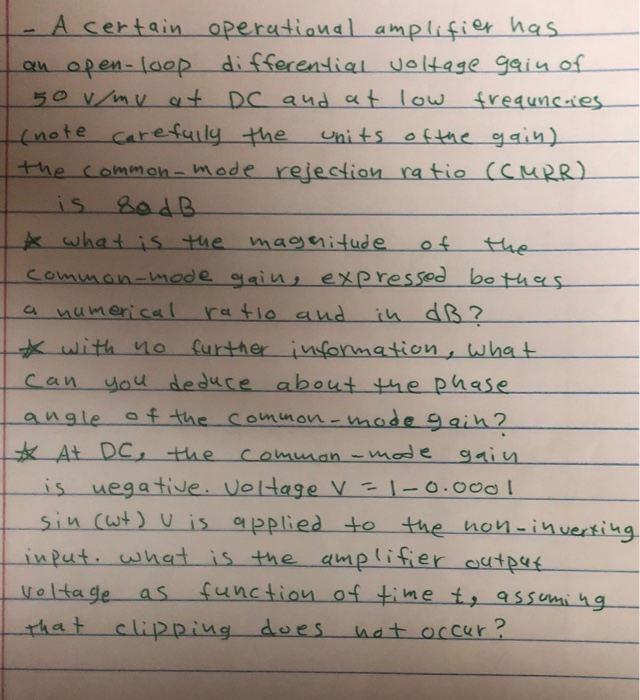 - A certain operational amplifier has
an open-loop differential voltage gain of
50 v/mv at DC and at low frequncies
(note carefully the units of the gain)
the common-mode rejection ratio (CMRR)
is 80dB
* what is the magnitude of the
common-mode gain, expressed both as
a numerical ratio and in dB?
* with no further information, what
can you deduce about the phase
angle of the common-mode gain?
* At DC, the common-mode gain
is negative. Voltage V = 1-0.0001
sin (wt) v is applied to the non-inverting
input. what is the amplifier output
voltage as function of time t, assuming
that clipping does not occur?